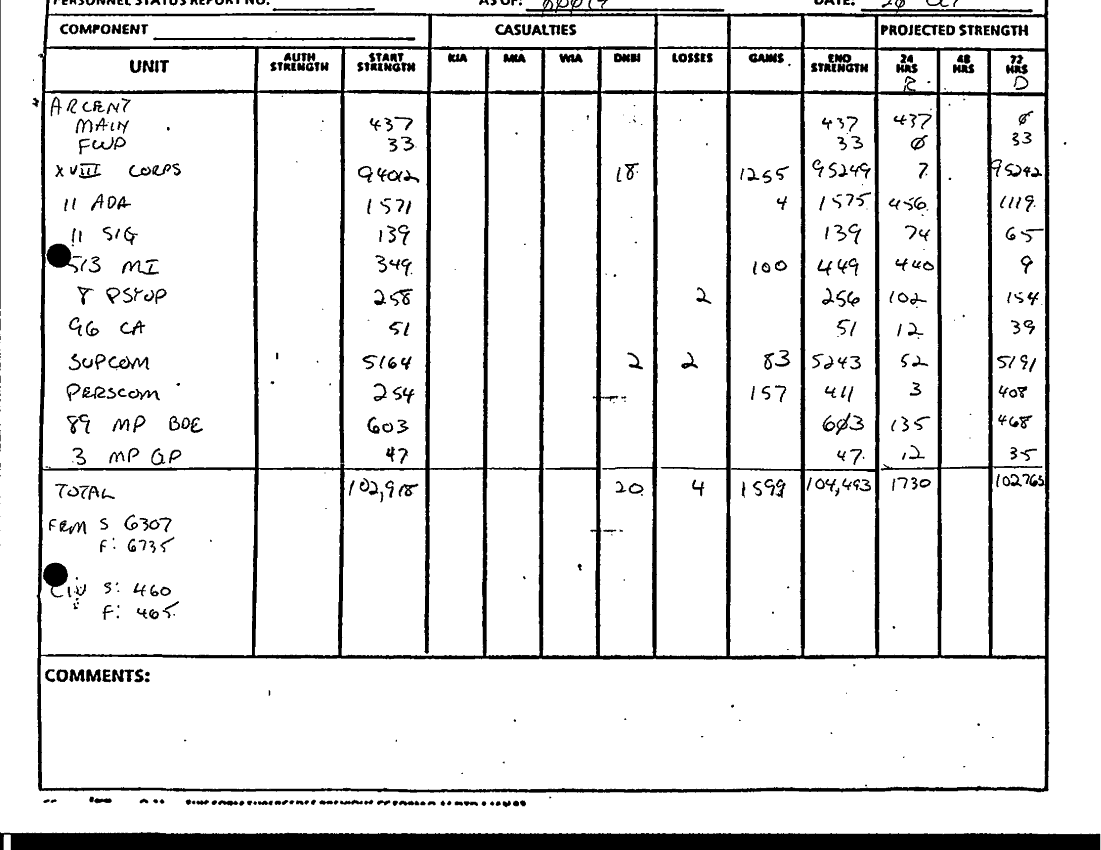 PERSONNEL STATUS REPORT NO. AS OF: DATE: 20 OCT
COMPONENT CASUALTIES PROJECTED STRENGTH
UNIT AUTH STRENGTH START STRENGTH KIA MIA WIA DNBI LOSSES GAINS END STRENGTH 24 HRS 48 HRS 72 HRS
R D
ARCENT
MAIN 437 437 437 Ø
FWD 33 33 Ø 33
XVIII CORPS 94012 18 1255 95249 7 95242
11 ADA 1571 4 1575 456 1119
11 SIG 139 139 74 65
513 MI 349 100 449 440 9
8 PSYOP 258 2 256 102 154
96 CA 51 51 12 39
SUPCOM 5164 2 2 83 5243 52 5191
PERSCOM 254 157 411 3 408
89 MP BDE 603 603 135 468
3 MP GP 47 47 12 35
TOTAL 102,918 20 4 1599 104,493 1730 102765
FEM S 6307
F: 6735
CIV S: 460
F: 465
COMMENTS: